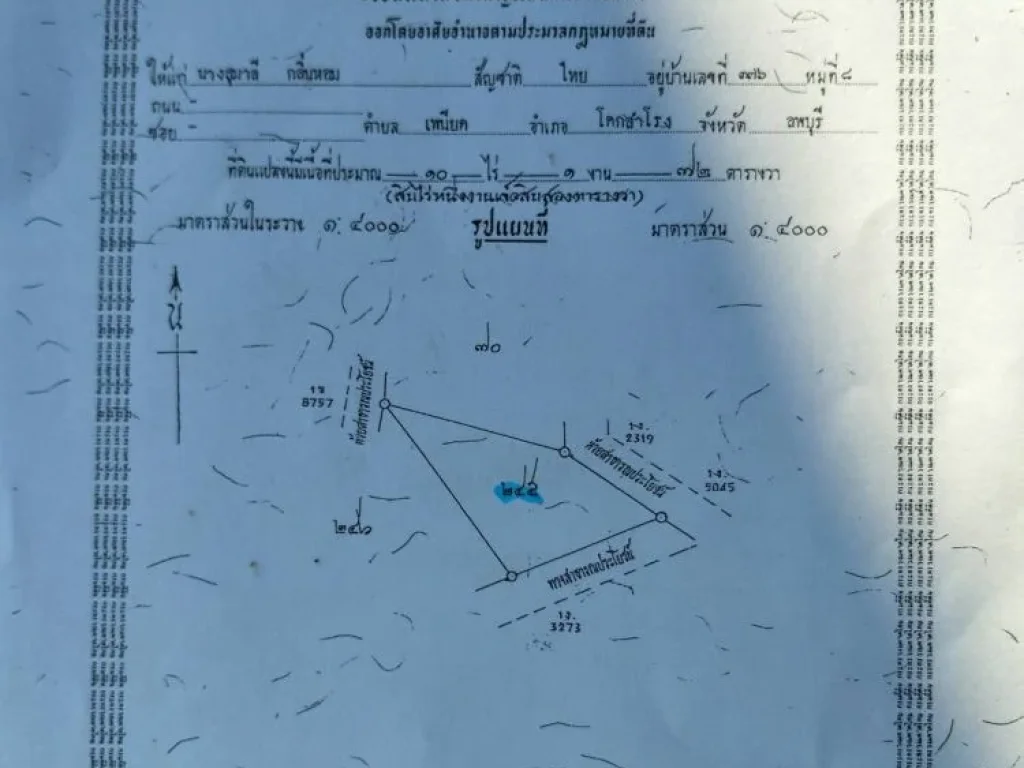 ออกโดยอาศัยอำนาจตามประมวลกฎหมายที่ดิน
ให้แก่ นางสุมาลี กลิ่นหอม สัญชาติ ไทย อยู่บ้านเลขที่ ๓๗๖ หมู่ที่ ๘
ถนน -
ซอย - ตำบล เพนียด อำเภอ โคกสำโรง จังหวัด ลพบุรี
ที่ดินแปลงนี้มีเนื้อที่ประมาณ ๑๐ ไร่ ๑ งาน ๗๒ ตารางวา
(สิบไร่หนึ่งงานเจ็ดสิบสองตารางวา)
มาตราส่วนในระวาง ๑: ๔๐๐๐ รูปแผนที่ มาตราส่วน ๑: ๔๐๐๐
น
๗๐
ห้วยสาธารณประโยชน์
รง.
2319
ห้วยสาธารณประโยชน์
รง.
๒๔๕
๒๔๖
ทางสาธารณประโยชน์
รง.
3273